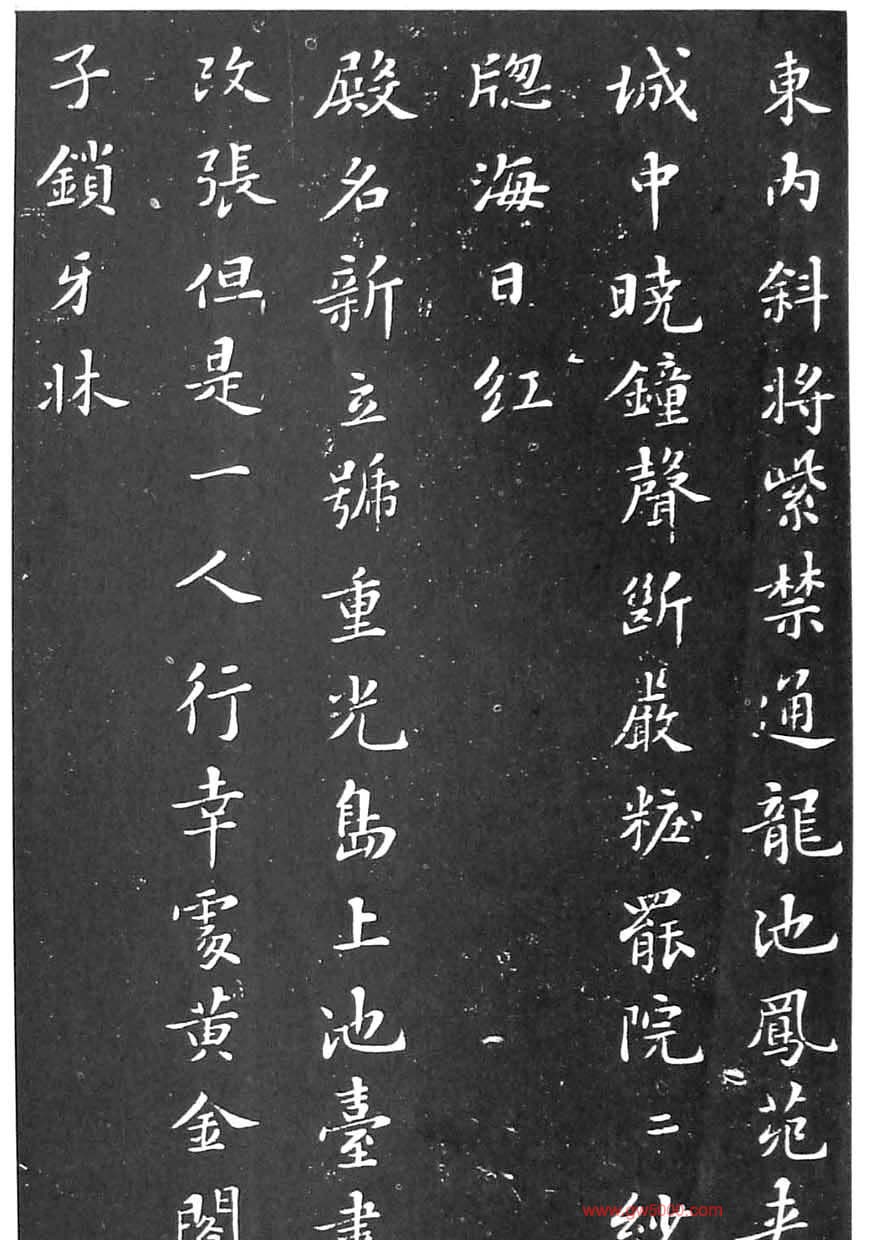 東內斜將紫禁通龍池鳳苑夾
城中曉鐘聲斷嚴粧罷院二紗
牕海日紅
殿名新立號重光島上池臺盡
改張但是一人行幸處黃金閤
子鎖牙牀